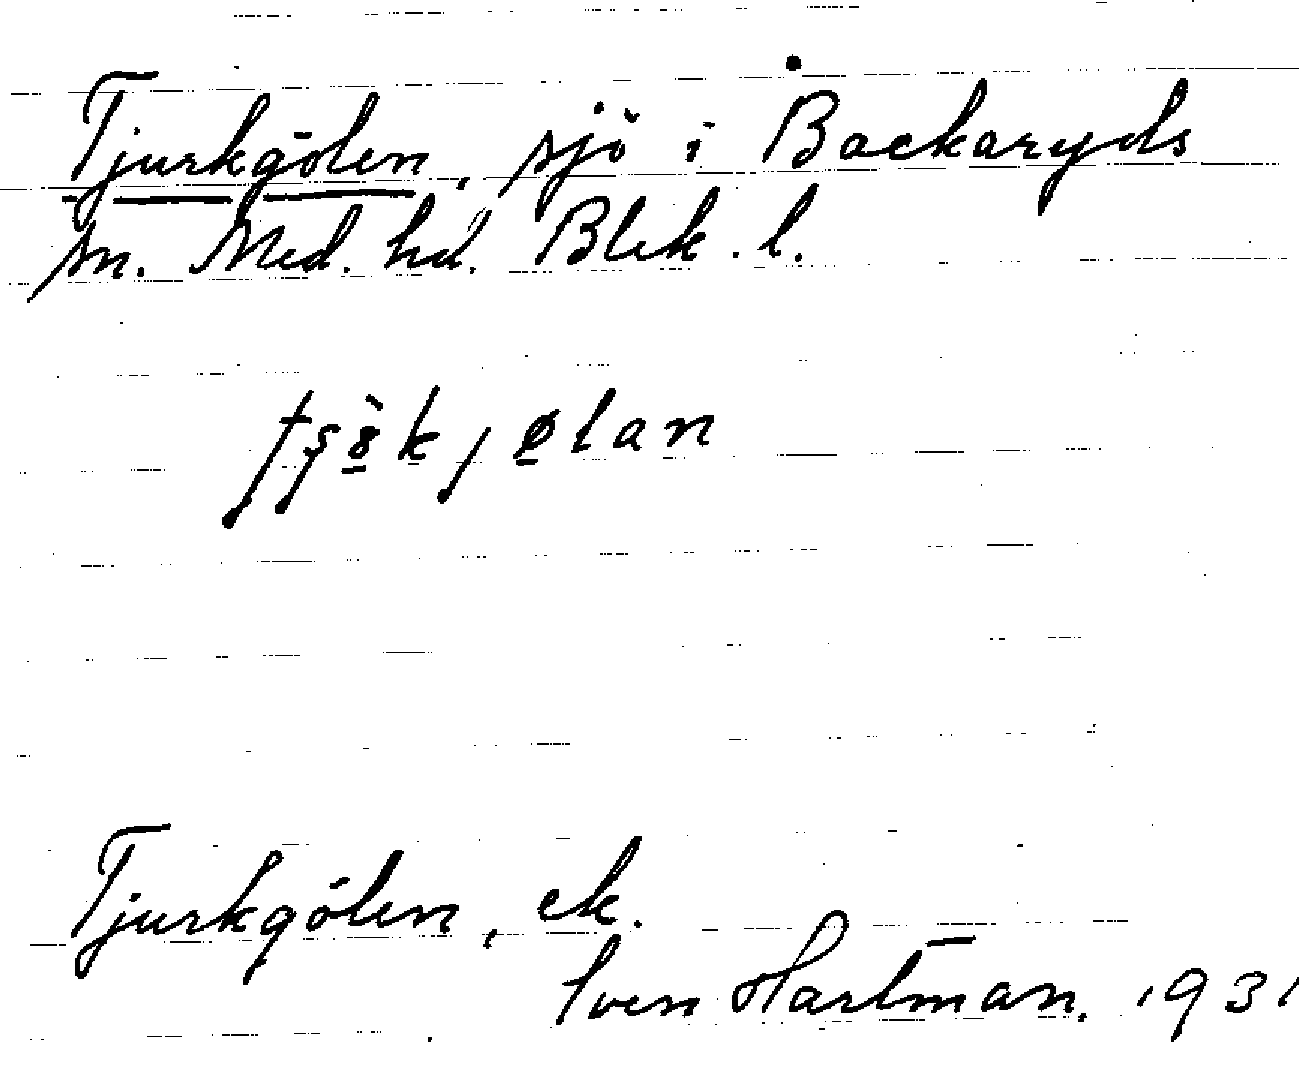 Tjurkgölen, sjö i Backaryds
sn. Med. hd. Blek. l.
Tjurkgölen, ek.
Sven Hartman. 1931